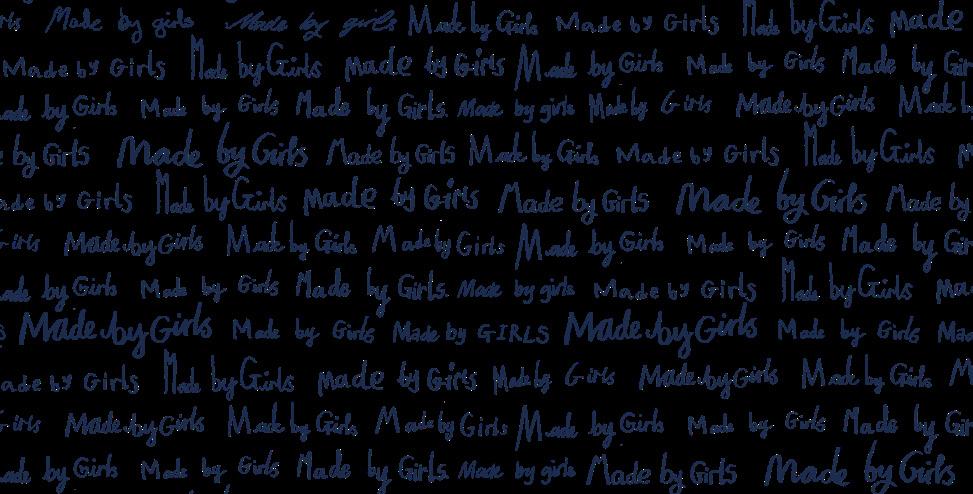 Made by girls Made by girls Made by Girls Made by Girls Made by Girls Made
Made by Girls Made by Girls Made by Girls Made by Girls Made by Girls Made by
by Girls Made by Girls Made by Girls. Made by girls Made by Girls Made by Girls Made
by Girls Made by Girls Made by Girls Made by Girls Made by Girls Made by Girls
by Girls Made by Girls Made by Girls Made by Girls Made by Girls Made by
Girls Made by Girls Made by Girls Made by Girls Made by Girls Made by Girls Made by
by Girls Made by Girls Made by Girls. Made by girls Made by Girls Made by Girls
Made by Girls Made by Girls Made by GIRLS Made by Girls Made by Girls
by Girls Made by Girls Made by Girls Made by Girls Made by Girls Made by Girls
Girls Made by Girls Made by Girls Made by Girls Made by Girls Made by Girls Made by
by Girls Made by Girls Made by Girls. Made by girls Made by Girls Made by Girls